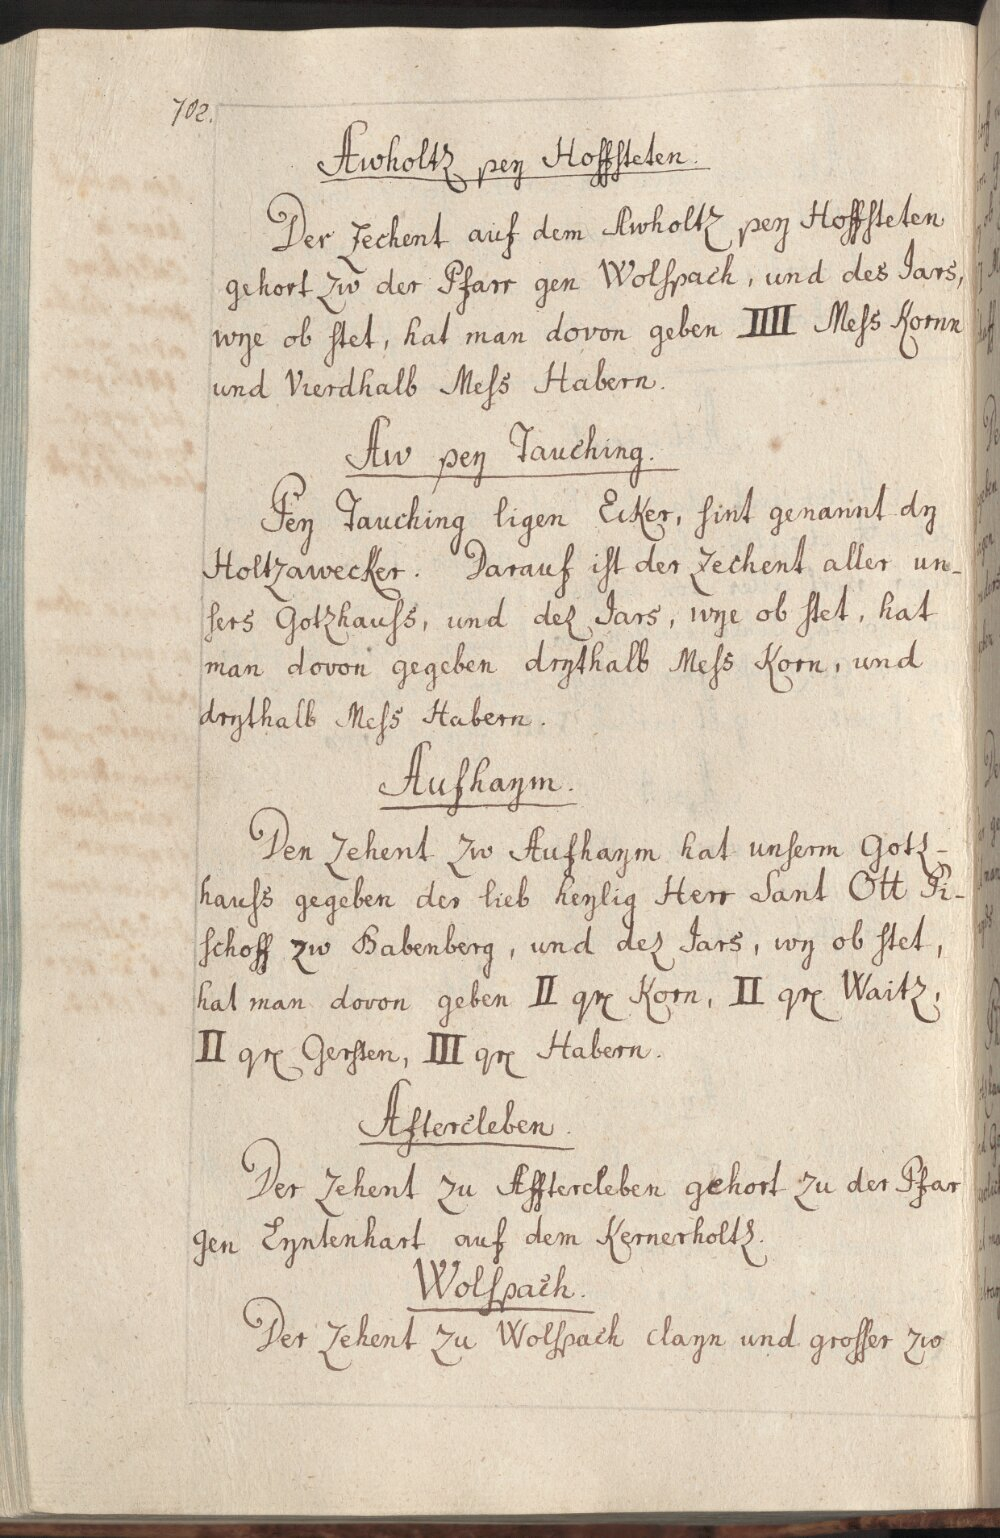 702.
Awholtz pey Hoffsteten.
Der Zechent auf dem Awholtz pey Hoffsteten
gehort zw der Pfarr gen Wolspach, und des Jars,
wye ob stet, hat man dovon geben IIII Mess Kornn
und Vierdhalb Mess Habern.
Aw pey Tauching.
Pey Tauching ligen Ecker, sint genannt dy
Holtzawecker. Darauf ist der Zechent aller un-
sers Gotzhauss, und dez Jars, wye ob stet, hat
man dovon gegeben drythalb Mess Korn, und
drythalb Mess Habern.
Aufhaym.
Den Zehent zw Aufhaym hat unserm Gotz-
hauss gegeben der lieb heylig Herr Sant Ott Pi-
schoff zw Babenberg, und dez Jars, wy ob stet,
hat man dovon geben II qr Korn, II qr Waitz,
II qr Gersten, III qr Habern.
Aftercleben.
Der Zehent zu Afftercleben gehort zu der Pfar
gen Eyntenhart auf dem Kernerholtz.
Wolspach.
Der Zehent zu Wolspach clayn und grosser zw